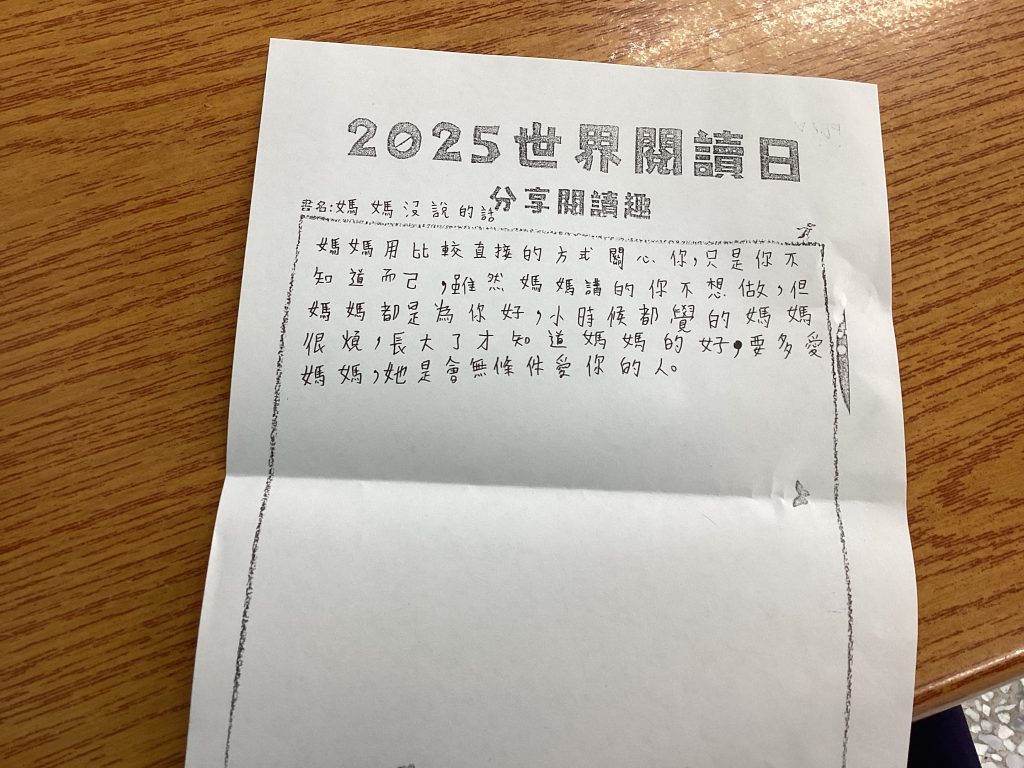 2025世界閱讀日
分享閱讀趣
書名:媽媽沒說的話
媽媽用比較直接的方式關心你,只是你不
知道而己,雖然媽媽講的你不想做,但
媽媽都是為你好,小時候都覺的媽媽
很煩,長大了才知道媽媽的好,要多愛
媽媽,她是會無條件愛你的人。